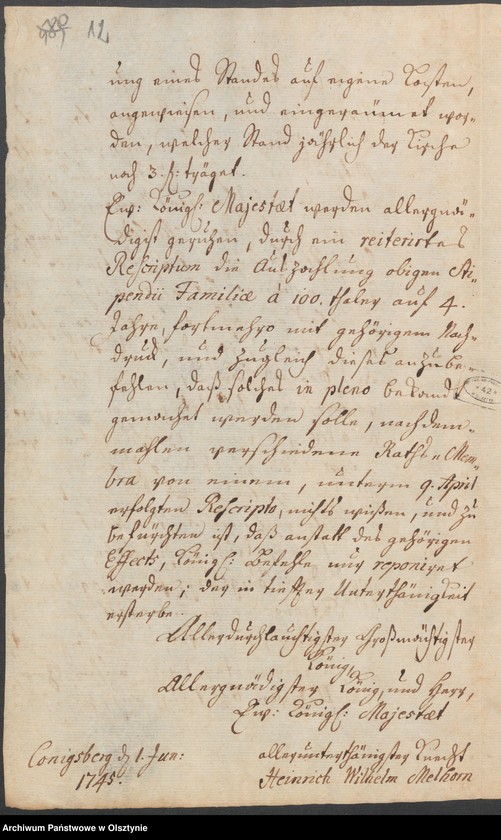 12
ung eines Standes auf eigene Kosten,
angewiesen, und eingeraümet wor-
den, welcher Stand jährlich der Kirche
noch 3. f: träget.
Ew: Königl: Majestæt werden allergnä-
digst geruhen, durch ein reiterirtes
Rescriptum die Auszahlung obigen Sti-
pendii Familiæ á 100. thaler auf 4.
Jahre, fortmehro mit gehörigem Nach-
druck, und zugleich dieses anzube-
fehlen, daß solches in pleno bekandt
gemachet werden solle, nachdem-
mahlen verschiedene Raths-Mem-
bra von einem, unterm 9. April
erfolgten Rescripto, nichts wißen, und zu
befürchten ist, daß anstatt des gehörigen
Effects, Königl: Befehle nur reponiret
werden; der in tieffster Unterthänigkeit
ersterbe.
Allerdurchlauchtigster Großmächtigster
König,
Allergnädigster König, und Herr,
Ew: Königl: Majestæt
Conigsberg d 1. Jun:
1745.
allerunterthänigster Knecht
Heinrich Wilhelm Melhorn
Archiwum Państwowe w Olsztynie